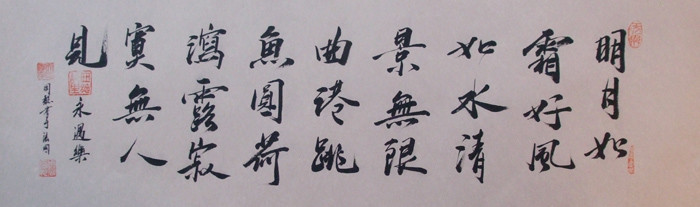 明月如
霜好風
如水清
景無限
曲港跳
魚圓荷
瀉露寂
寞無人
見
永遇樂